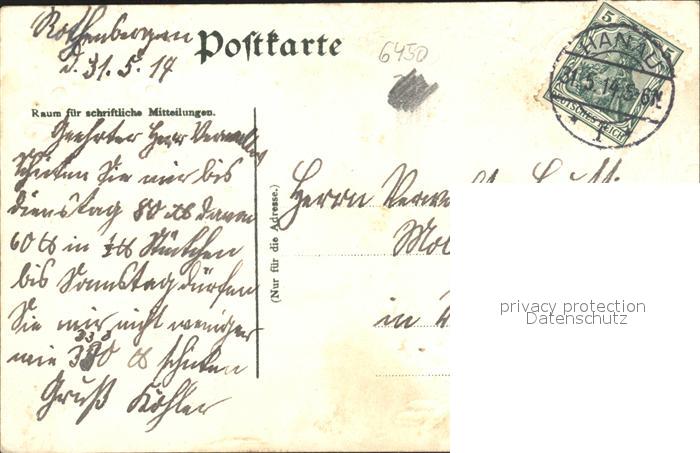 Rothenbergen
d. 31.5.14
Postkarte
6450
5
HANAU
31.5.14.5-6N
DEUTSCHES REICH
* 1 *
Raum für schriftliche Mitteilungen.
Geehrter Herr Verwalter
schicken Sie mir bis
dienstag 80 ℔ davon
60 ℔ in ½ ℔ Stückchen
bis Sonnstag dürfen
Sie mir nicht weniger
wie 330 ℔ schicken
Gruß Köhler
(Nur für die Adresse.)
Herrn Verw
Mol
in
privacy protection
Datenschutz